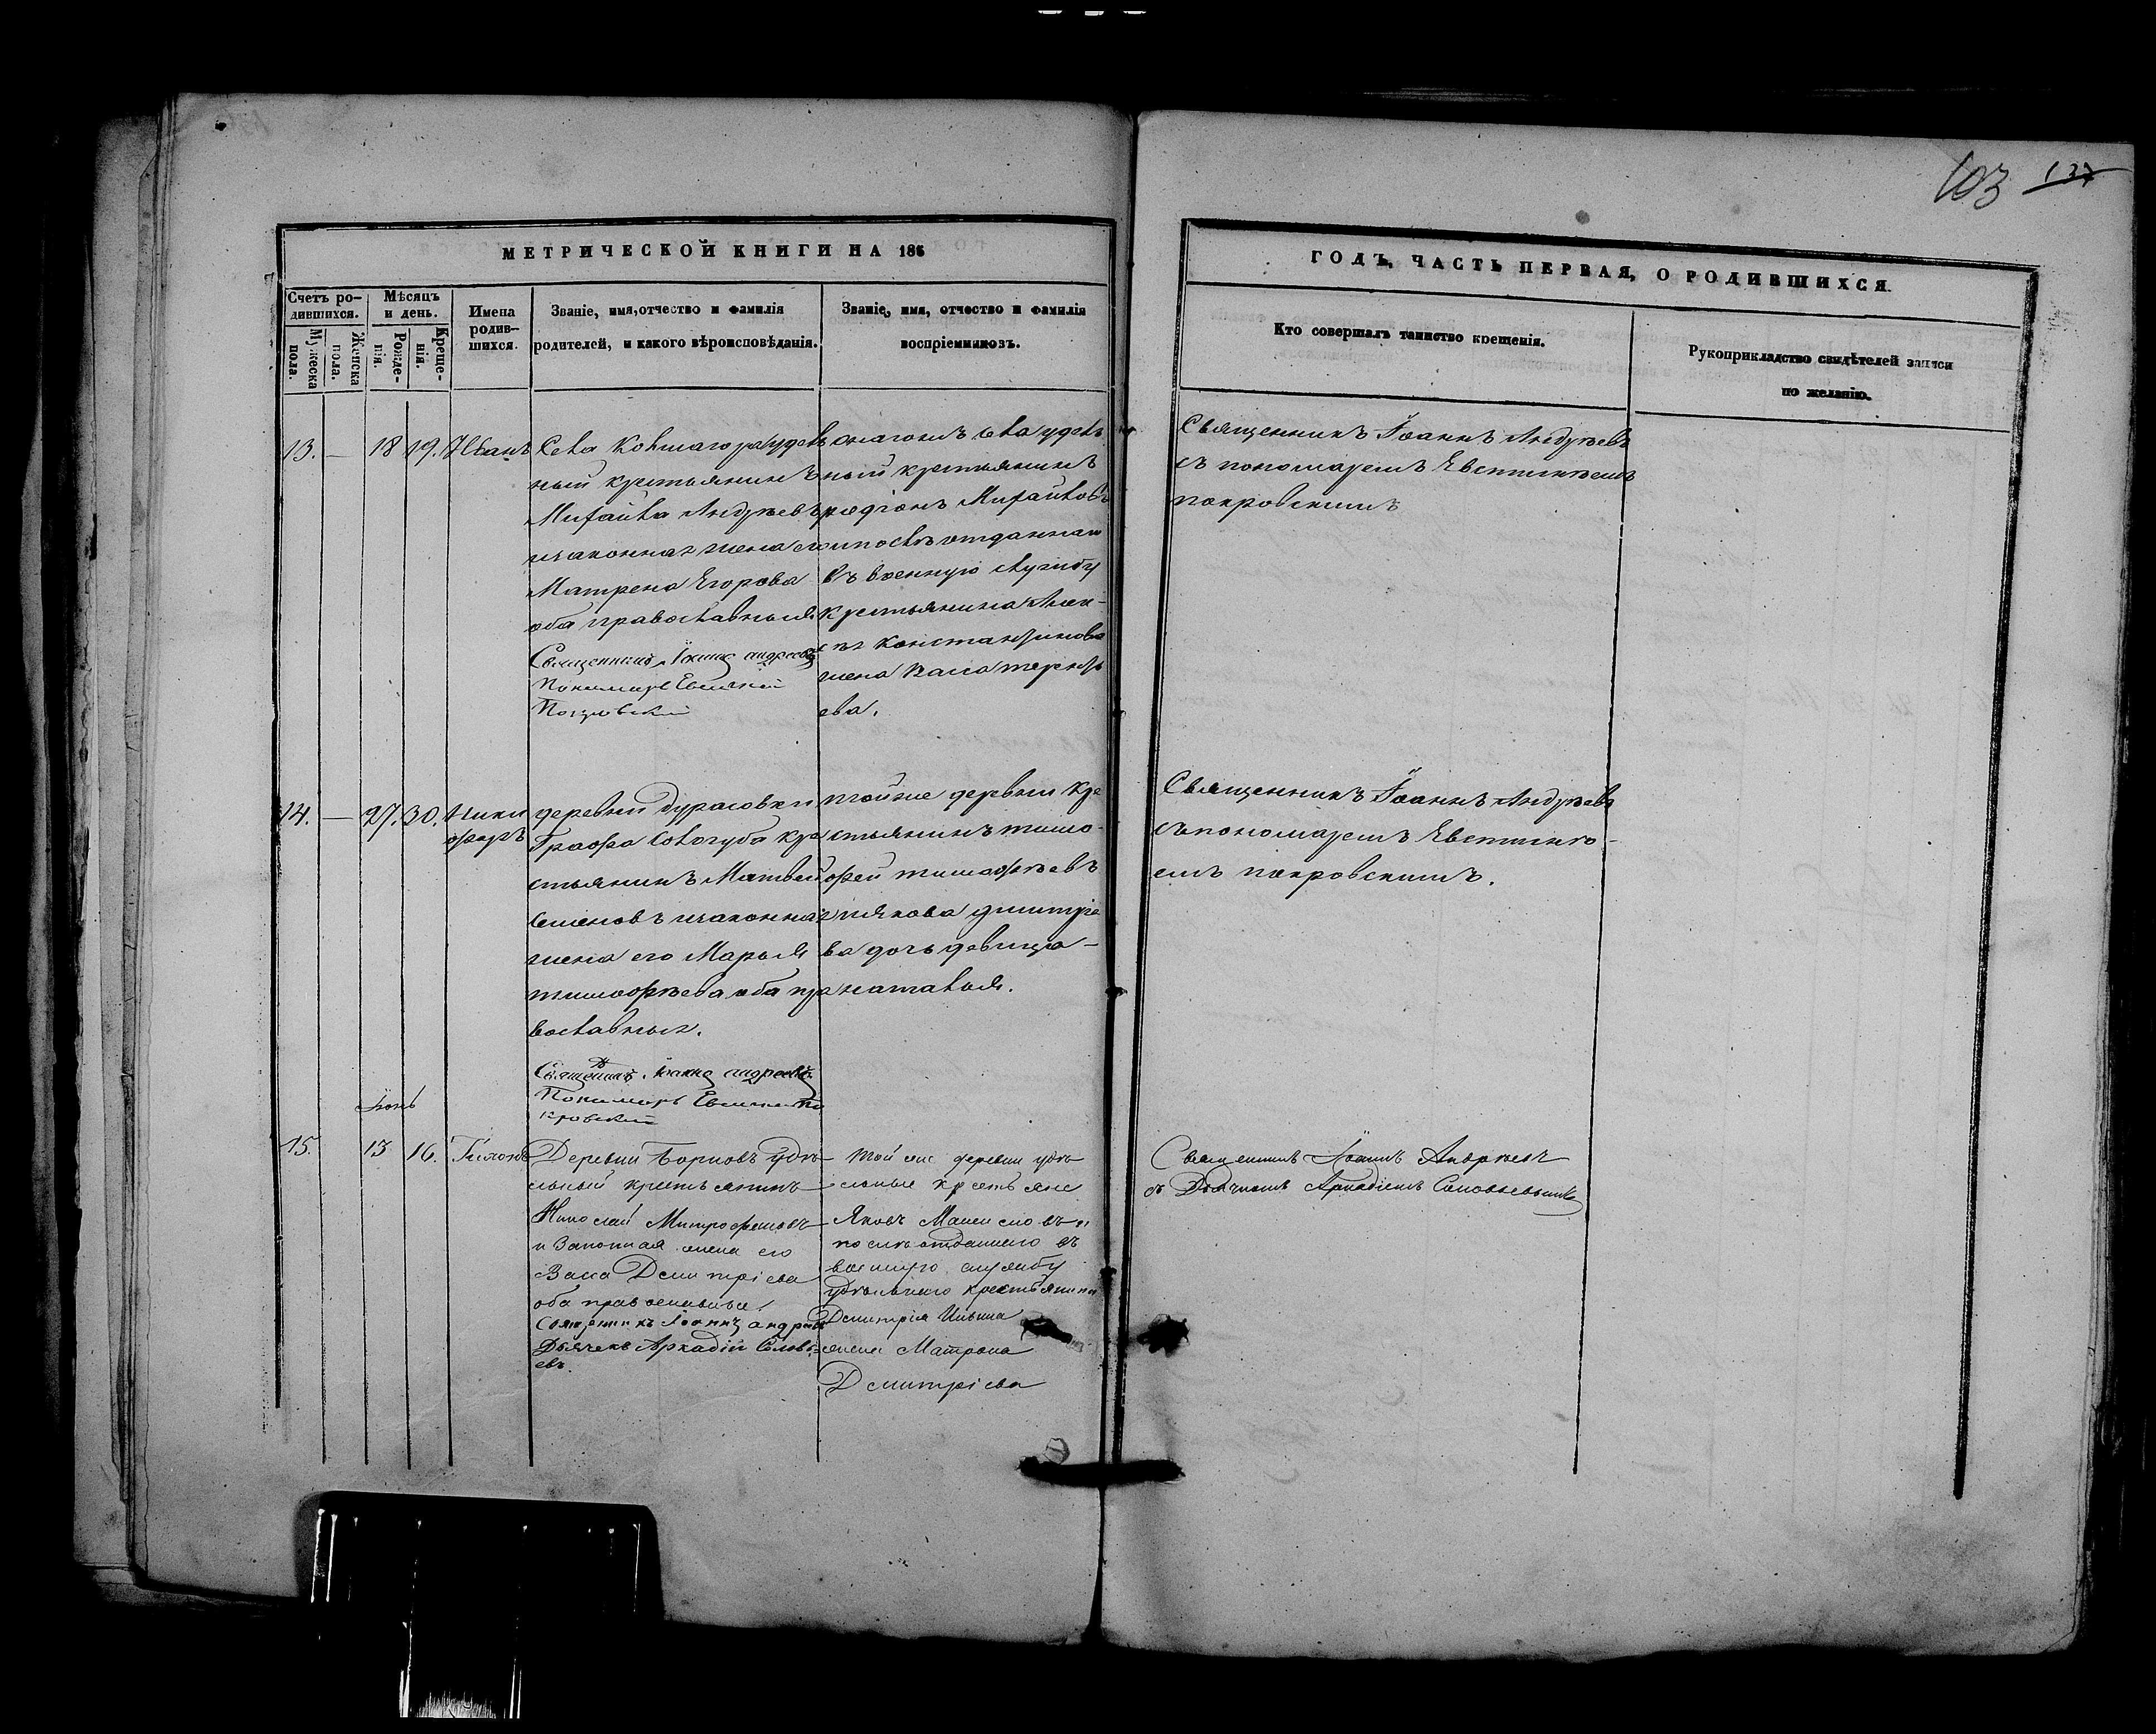 103 137
МЕТРИЧЕСКОЙ КНИГИ НА 186
ГОДЪ, ЧАСТЬ ПЕРВАЯ, О РОДИВШИХСЯ.
Счетъ ро-
дившихся.
Мужеска
пола.
Женска
пола.
Мѣсяцъ
и день.
Рожде-
нія.
Креще-
нія.
Имена
родив-
шихся.
Званіе, имя, отчество и фамилія
родителей, и какого вѣроисповѣданія.
Званіе, имя, отчество и фамилія
воспріемниковъ.
Кто совершалъ таинство крещенія.
Рукоприкладство свидѣтелей записи
по желанію.
13. — 18 19. Иванъ
Села
ный крестьянинъ
Михайла Андреевъ
изаконная жена его
Матрена Егорова
оба православныя
Священникъ Іоаннъ Андреевъ
Пономарь Евсигній
Покровскій
села удель
ный крестьянинъ
Михайловъ
ипослѣ отданнаго
въ военную службу
крестьянина
Константинова
жена
ева.
Священникъ Іоаннъ Андреевъ
съ пономаремъ
покровскимъ
14. — 27. 30. Ники
форъ
деревни Дурасовки
Графа Сологуба кре
стьянинъ Матвей
Семеновъ изаконная
жена его Марья
тимофѣева оба пра
вославных.
Священникъ Іоаннъ Андреевъ
Пономарь
кровскій
тойже деревни кре
стьянинъ тимо-
фей тимофѣевъ
иякова дмитріе
ва дочь девица —
наталья.
Священникъ Іоаннъ Андреевъ
съ пономаремъ
емъ покровскимъ.
Іюнь
15. 13 16. Тихонъ
Деревни удѣ
льный крестьянинъ
Николай Митрофановъ
и Законная жена его
Васа Дмитріева
оба православные
Священникъ Іоаннъ Андреевъ
Дьячекъ Аркадій Соловь-
евъ.
той же деревни удѣ
льные крестьяне
Яковъ и
послѣ отданнаго въ
военную службу
удѣльнаго крестьянина
Дмитрія Ильина
жена Матрона
Дмитріева
Священникъ Іоаннъ Андреевъ
съ Дьячкомъ Аркадіемъ Соловьевымъ